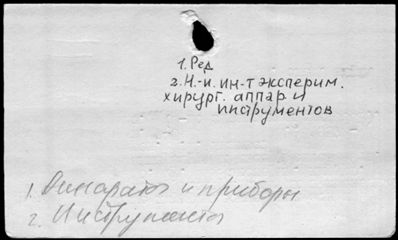 1. Ред
2. Н.-и. ин-т эксперим.
хирург. аппар. и
инструментов
1. Аппараты и приборы
2. Инструменты